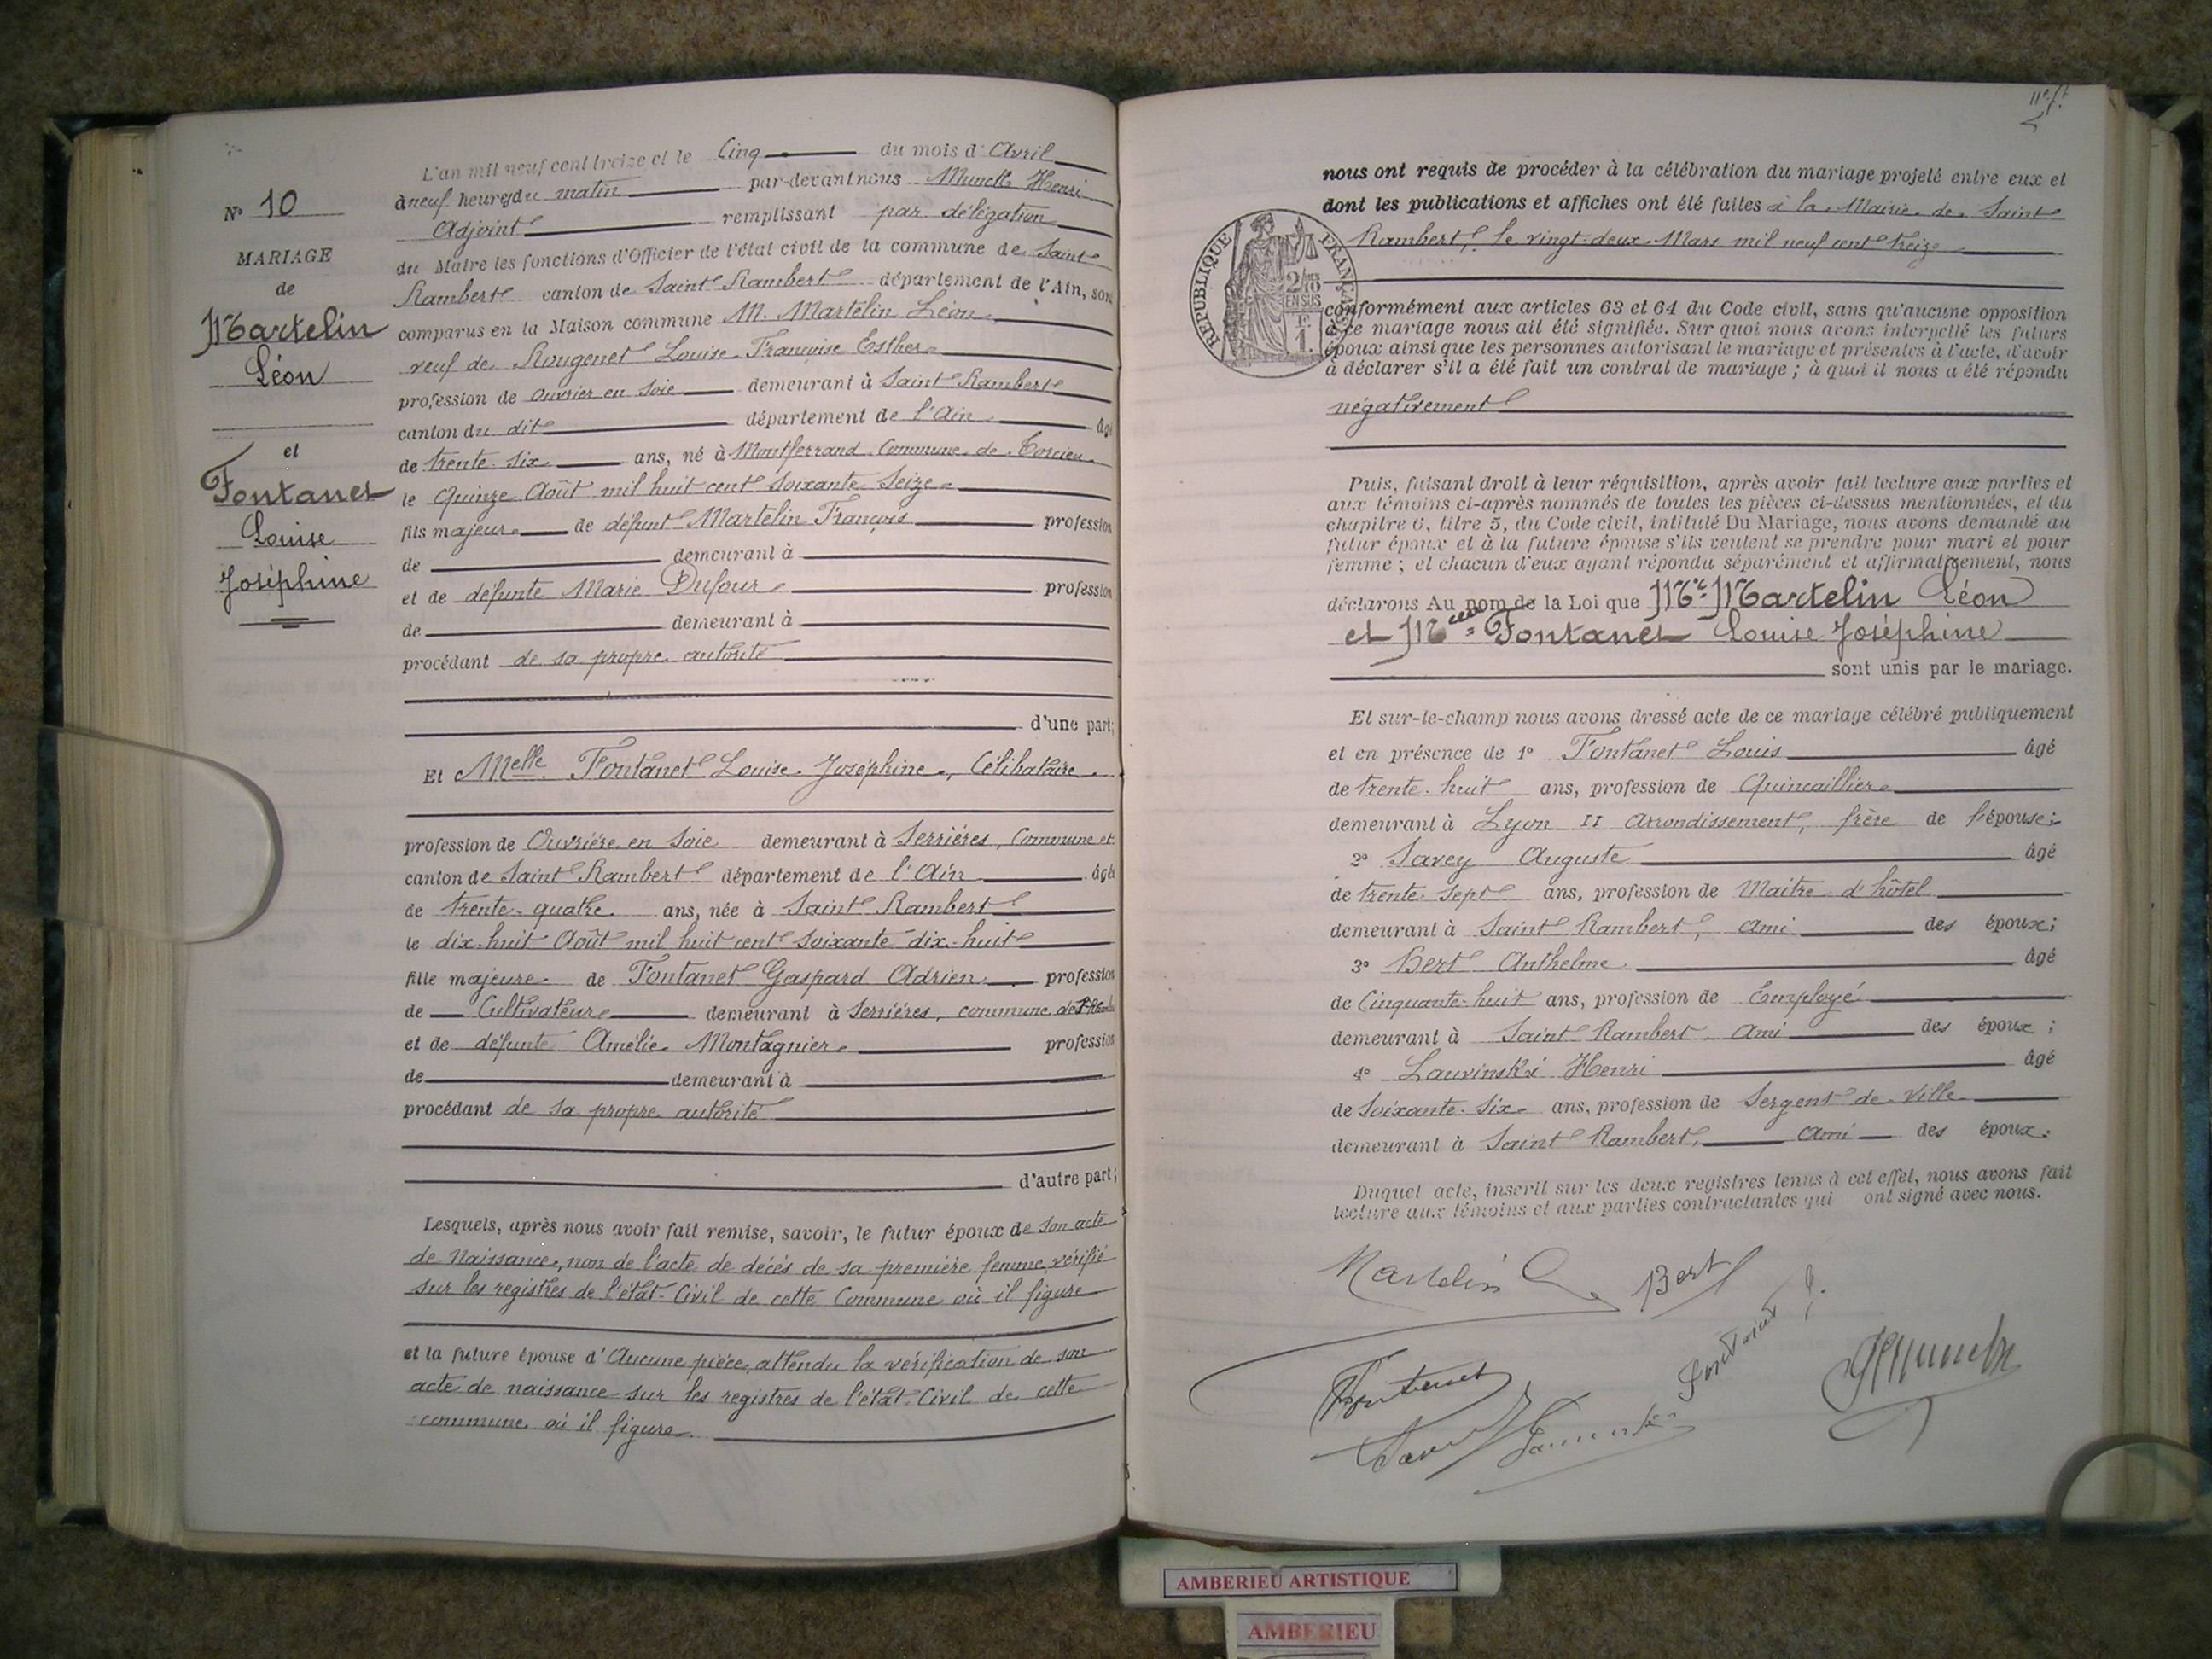 N° 10
MARIAGE
de
Martelin
Léon
et
Fontanet
Louise
Joséphine
L'an mil neuf cent treize et le Cinq du mois d'Avril
à neuf heures du matin par-devant nous Munck Henri
Adjoint remplissant par délégation
du Maire les fonctions d'Officier de l'état civil de la commune de Saint
Rambert canton de Saint Rambert département de l'Ain, son
comparus en la Maison commune M. Martelin Léon
veuf de Rougenet Louise Françoise Esther
profession de ouvrier en soie demeurant à Saint Rambert
canton du dit département de l'Ain âgé
de trente six ans, né à Montferrand Commune de Torcieu
le Quinze Août mil huit cent soixante seize
fils majeur de défunt Martelin François profession
de demeurant à
et de défunte Marie Dufour profession
de demeurant à
procédant de sa propre autorité
d'une part;
Et Melle Fontanet Louise Joséphine, Célibataire
profession de Ouvrière en Soie demeurant à Serrières, Commune et
canton de Saint Rambert département de l'Ain âgée
de trente-quatre ans, née à Saint Rambert
le dix-huit Août mil huit cent soixante dix-huit
fille majeure de Fontanet Gaspard Adrien profession
de Cultivateur demeurant à Serrières, commune de
et de défunte Amélie Montagnier profession
de demeurant à
procédant de sa propre autorité
d'autre part;
Lesquels, après nous avoir fait remise, savoir, le futur époux de son acte
de Naissance, non de l'acte de décès de sa première femme vérifié
sur les registres de l'état-Civil de cette Commune où il figure
et la future épouse d'Aucune pièce, attendu la vérification de son
acte de naissance sur les registres de l'état-Civil de cette
commune où il figure
nous ont requis de procéder à la célébration du mariage projeté entre eux et
dont les publications et affiches ont été faites à la Mairie de Saint
Rambert, le vingt-deux Mars mil neuf cent treize
REPUBLIQUE FRANÇAISE
2/10
EN SUS
F.
1.
conformément aux articles 63 et 64 du Code civil, sans qu'aucune opposition
à ce mariage nous ait été signifiée. Sur quoi nous avons interpellé les futurs
époux ainsi que les personnes autorisant le mariage et présentes à l'acte, d'avoir
à déclarer s'il a été fait un contrat de mariage ; à quoi il nous a été répondu
négativement
Puis, faisant droit à leur réquisition, après avoir fait lecture aux parties et
aux témoins ci-après nommés de toutes les pièces ci-dessus mentionnées, et du
chapitre 6, titre 5, du Code civil, intitulé Du Mariage, nous avons demandé au
futur époux et à la future épouse s'ils veulent se prendre pour mari et pour
femme ; et chacun d'eux ayant répondu séparément et affirmativement, nous
déclarons Au nom de la Loi que Mr Martelin Léon
et Melle Fontanet Louise Joséphine
sont unis par le mariage.
Et sur-le-champ nous avons dressé acte de ce mariage célébré publiquement
et en présence de 1° Fontanet Louis âgé
de trente-huit ans, profession de Quincaillier
demeurant à Lyon II Arrondissement, frère de l'épouse;
2° Savey Auguste âgé
de trente sept ans, profession de Maitre d'hôtel
demeurant à Saint Rambert, ami des époux;
3° Bert Anthelme âgé
de Cinquante-huit ans, profession de Employé
demeurant à Saint Rambert ami des époux ;
4° Lauvinski Henri âgé
de Soixante-six ans, profession de Sergent de Ville
demeurant à Saint Rambert, ami des époux.
Duquel acte, inscrit sur les deux registres tenus à cet effet, nous avons fait
lecture aux témoins et aux parties contractantes qui ont signé avec nous.
Martelin Bert
Fontanet
AMBERIEU ARTISTIQUE
AMBERIEU